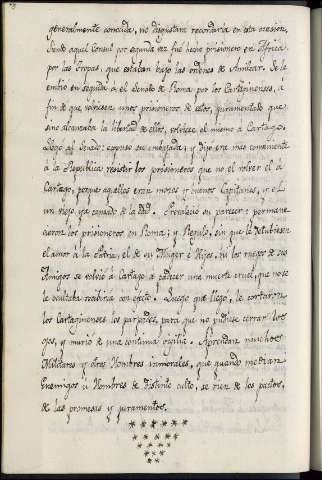 generalmente conocida, no disgustará recordarla en esta ocasion.
Siendo aquel Consul por segunda vez fue hecho prisionero en Africa
por las Tropas, que estaban bajo las ordenes de Amilcar. Se le
embio en seguida a el Senado de Roma por los Cartaginenses, á
fin de que volviesen unos prisioneros de estos, juramentado que
sino alcanzaba la libertad de ellos, volviese el mismo á Cartago.
Llego al Senado; expuso su embajada; y dijo era mas combeniente
á la Republica resistir los prisioneros que no el volver él á
Cartago, porque aquellos eran mozos y buenos Capitanes, y el
un viejo ya cansado de la edad. Prevaleció su parecer: permane
cieron los prisioneros en Roma; y Regulo, sin que le detubiesen
el amor á la Patria, el de su Muger é Hijos, ni los ruegos de sus
Amigos se volvió á Cartago á padecer una muerte cruel, que no se
le ocultaba recibiria con efecto. Luego que llego, le cortaron
los Cartaginenses los parpados, para que no pudiese cerrar los
ojos, y murió de una continua vigilia. Aprendan muchos
Militares y otros Hombres inmorales, que quando median
Enemigos ú Hombres de distinto culto, se rien de los pactos,
de las promesas y juramentos.